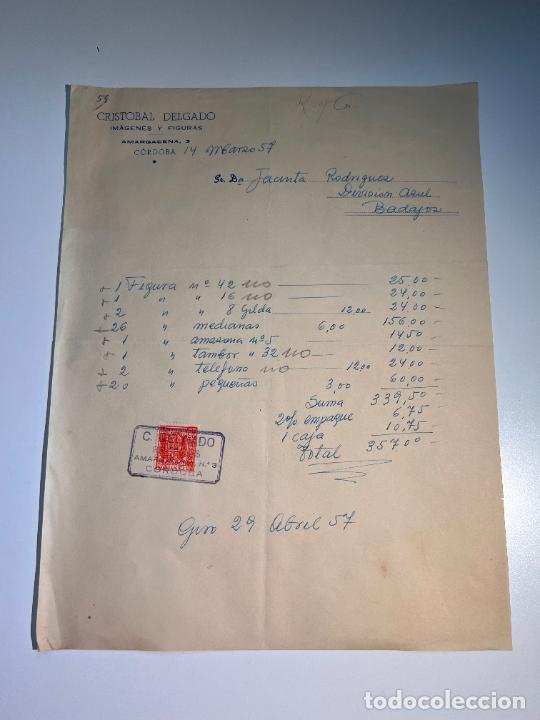 59
R y G
CRISTOBAL DELGADO
IMÁGENES Y FIGURAS
AMARGACENA, 3
CÓRDOBA 14 Marzo 57
Sr. Da Jacinta Rodriguez
Division Azul
Badajoz
+ 1 Figura nº 42 NO 25,00 -
+ 1 " " 16 NO 24,00 -
+ 2 " " 8 Gilda 12,00 24,00 -
+ 26 " medianas 6,00 156,00 -
+ 1 " amazona nº 5 14,50 -
+ 1 " tambor " 32 NO 12,00 -
+ 2 " telefono NO 12,00 24,00 -
+ 20 " pequeñas 3,00 60,00 -
Suma 339,50 -
2% empaque 6,75 -
1 caja 10,75 -
Total 357,00 -
C. DELGADO
AMAR Nº 3
CORDOBA
Giro 29 Abril 57
todocoleccion.net